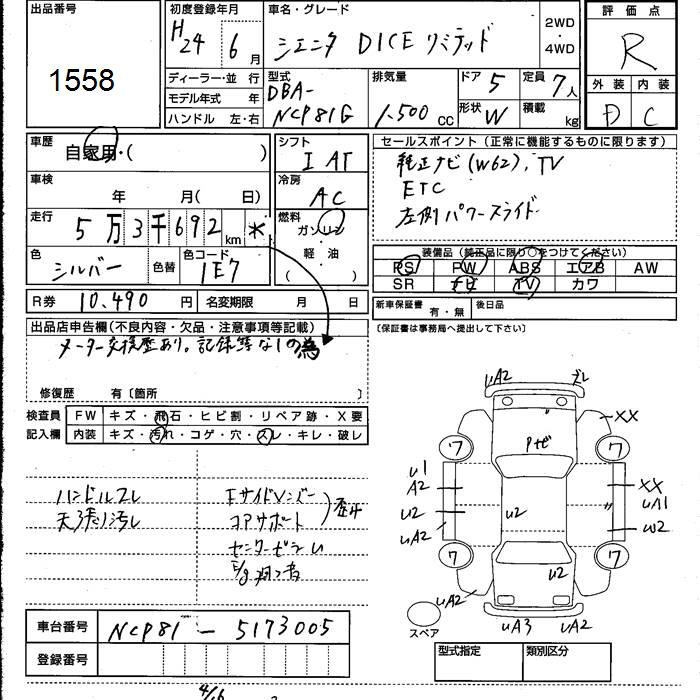 出品番号
1558
初度登録年月
H24 6月
車名・グレード
シエニタ DICE リミテッド
2WD
・
4WD
評価点
R
外装 内装
D C
ディーラー・並 行
モデル年式 年
ハンドル 左・右
型式
DBA-
NCP81G
排気量
1,500 cc
ドア 5
形状 W
定員 7人
積載 kg
車歴
自家用・( )
車検
年 月( 日)
走行
5万3千692km *
色
シルバー
色替
色コード
1E7
シフト
I AT
冷房
AC
燃料
ガソリン
・
軽・油
( )
セールスポイント (正常に機能するものに限ります)
純正ナビ(W62), TV
ETC
左側パワースライド
装備品(純正品に限り○をつけてください)
PS PW ABS エアB AW
SR ナビ TV カワ
R券 10,490 円
名変期限 月 日
新車保証書 有・無
後日品
(保証書は事務局へ提出して下さい)
出品店申告欄(不良内容・欠品・注意事項等記載)
メーター交換歴あり。記録等なしの為
修復歴 有〔箇所 〕
検査員
記入欄
FW キズ・飛石・ヒビ割・リペア跡・X要
内装 キズ・汚れ・コゲ・穴・スレ・キレ・破レ
ハンドルスレ
天張り汚レ
Fサイドメンバー
コアサポート
センターピラー
歪み
車台番号 NCP81-5173005
登録番号
UA2 ズレ
XX
ワ ワ
U1
A2
U2
UA2
U2
XX
UA1
W2
ワ ワ
U2
UA2
UA3 UA2
スペア
型式指定 類別区分